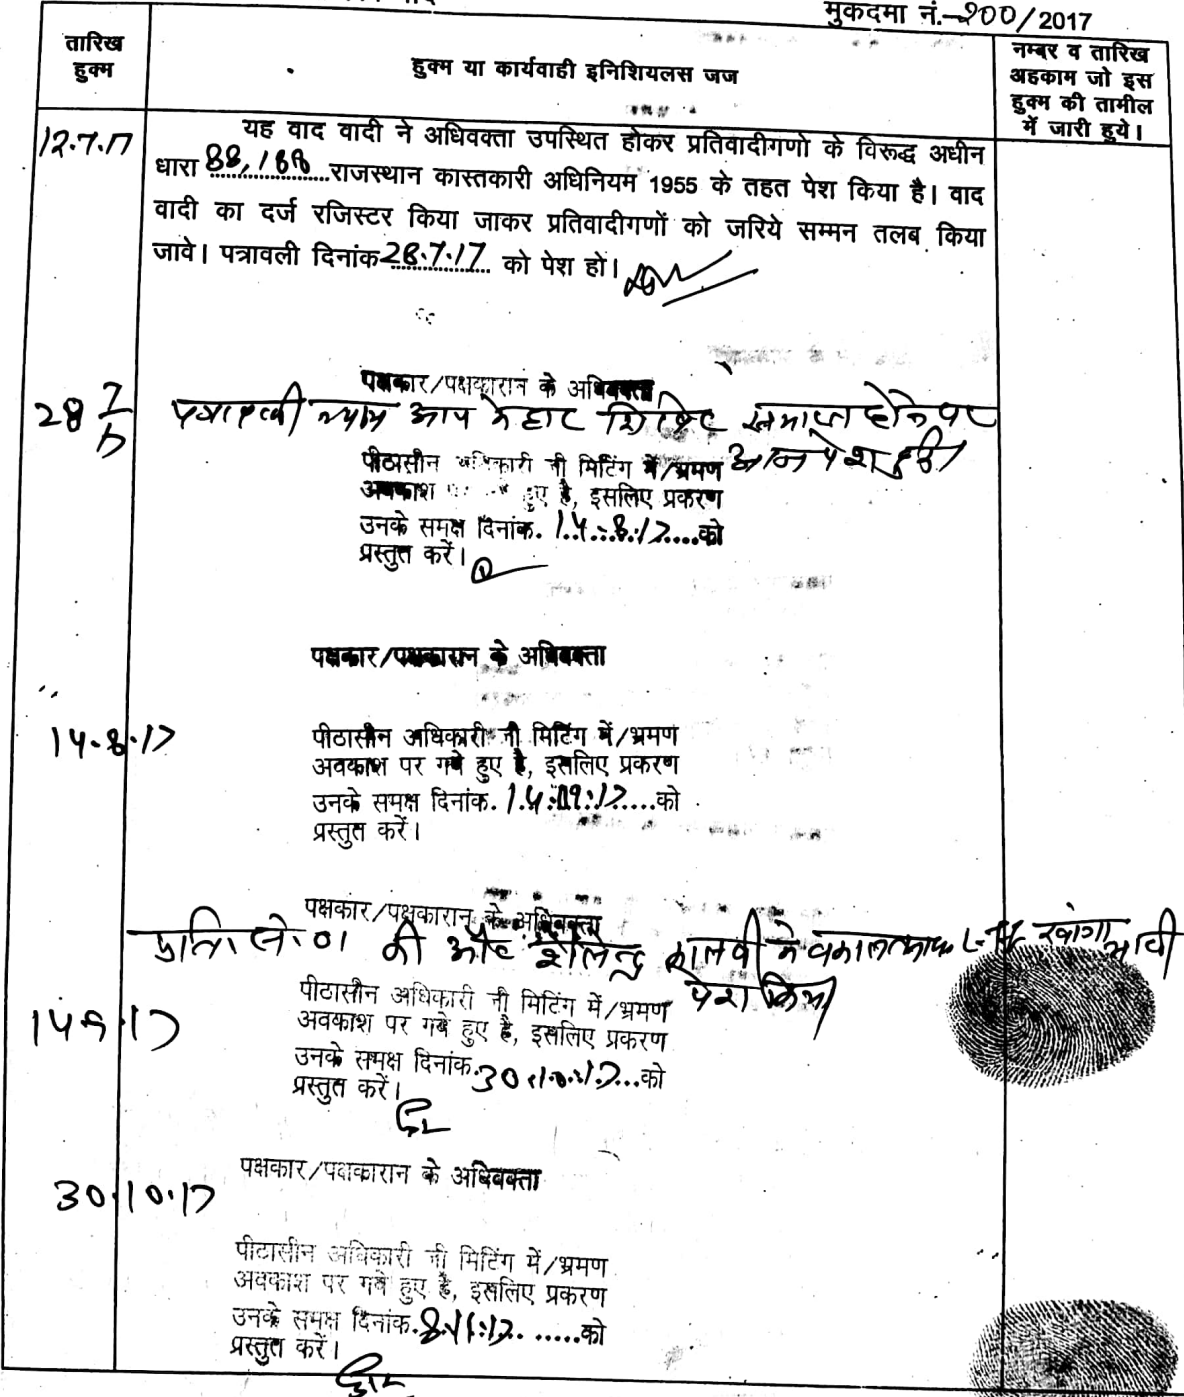 मुकदमा नं.-200/2017
तारिख
हुक्म
हुक्म या कार्यवाही इनिशियलस जज
नम्बर व तारिख
अहकाम जो इस
हुक्म की तामील
में जारी हुये।
12.7.17
यह वाद वादी ने अधिवक्ता उपस्थित होकर प्रतिवादीगणो के विरूद्ध अधीन
धारा 88, 188 राजस्थान कास्तकारी अधिनियम 1955 के तहत पेश किया है। वाद
वादी का दर्ज रजिस्टर किया जाकर प्रतिवादीगणों को जरिये सम्मन तलब किया
जावे। पत्रावली दिनांक 28.7.17 को पेश हो।
पक्षकार/पक्षकारान के अधिवक्ता
28 7/17 पत्रावली न्याय आपके द्वार शिविर समाप्त होने पर
आज पेश हुई।
पीठासीन अधिकारी जी मिटिंग में/भ्रमण
अवकाश पर गये हुए है, इसलिए प्रकरण
उनके समक्ष दिनांक. 14.8.17....को
प्रस्तुत करें।
पक्षकार/पक्षकारान के अधिवक्ता
14.8.17
पीठासीन अधिकारी जी मिटिंग में/भ्रमण
अवकाश पर गये हुए है, इसलिए प्रकरण
उनके समक्ष दिनांक. 14.09.17....को
प्रस्तुत करें।
पक्षकार/पक्षकारान के अधिवक्ता
प्रति. सं. 01 की और शैलेन्द्र कालवी ने वकालतनामा
पेश किया
14.9.17
पीठासीन अधिकारी जी मिटिंग में/भ्रमण
अवकाश पर गये हुए है, इसलिए प्रकरण
उनके समक्ष दिनांक. 30.10.17...को
प्रस्तुत करें।
पक्षकार/पक्षकारान के अधिवक्ता
30.10.17
पीठासीन अधिकारी जी मिटिंग में/भ्रमण
अवकाश पर गये हुए है, इसलिए प्रकरण
उनके समक्ष दिनांक. 8.11.17. .....को
प्रस्तुत करें।